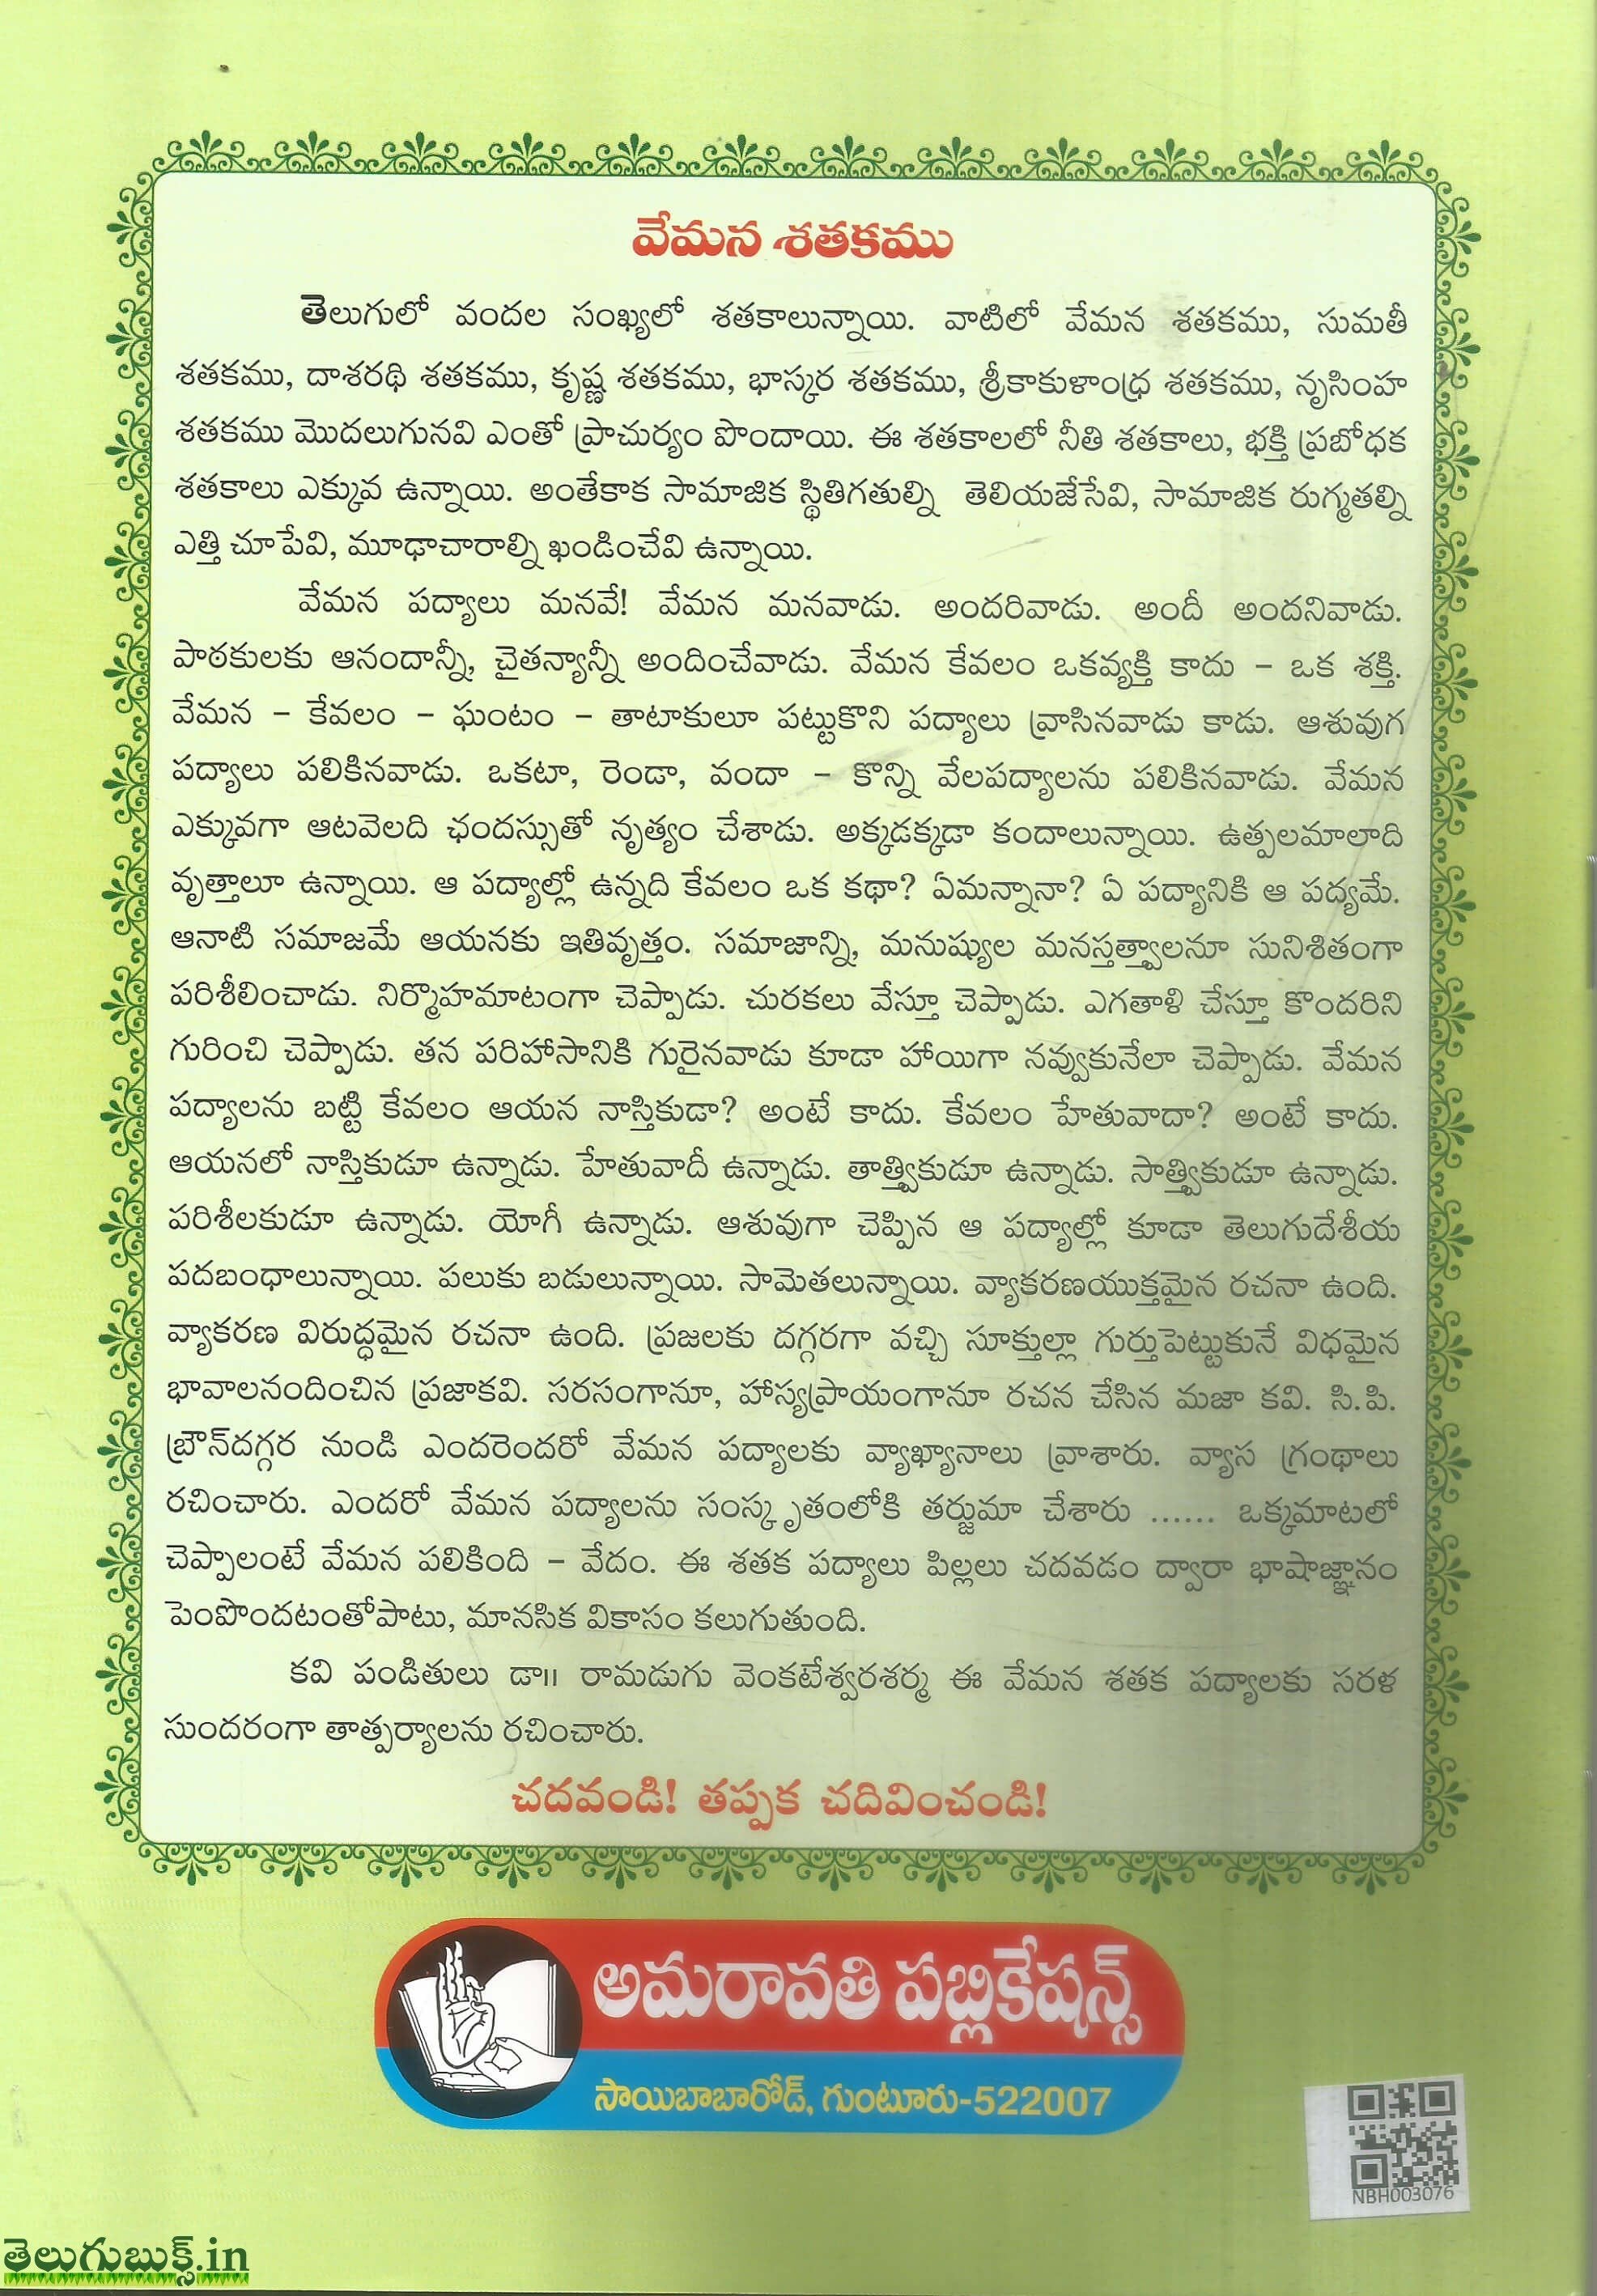 వేమన శతకము
తెలుగులో వందల సంఖ్యలో శతకాలున్నాయి. వాటిలో వేమన శతకము, సుమతీ
శతకము, దాశరథి శతకము, కృష్ణ శతకము, భాస్కర శతకము, శ్రీకాకుళాంధ్ర శతకము, నృసింహ
శతకము మొదలుగునవి ఎంతో ప్రాచుర్యం పొందాయి. ఈ శతకాలలో నీతి శతకాలు, భక్తి ప్రబోధక
శతకాలు ఎక్కువ ఉన్నాయి. అంతేకాక సామాజిక స్థితిగతుల్ని తెలియజేసేవి, సామాజిక రుగ్మతల్ని
ఎత్తి చూపేవి, మూఢాచారాల్ని ఖండించేవి ఉన్నాయి.
వేమన పద్యాలు మనవే! వేమన మనవాడు. అందరివాడు. అందీ అందనివాడు.
పాఠకులకు ఆనందాన్నీ, చైతన్యాన్నీ అందించేవాడు. వేమన కేవలం ఒకవ్యక్తి కాదు – ఒక శక్తి.
వేమన – కేవలం – ఘంటం – తాటాకులూ పట్టుకొని పద్యాలు వ్రాసినవాడు కాడు. ఆశువుగ
పద్యాలు పలికినవాడు. ఒకటా, రెండా, వందా – కొన్ని వేలపద్యాలను పలికినవాడు. వేమన
ఎక్కువగా ఆటవెలది ఛందస్సుతో నృత్యం చేశాడు. అక్కడక్కడా కందాలున్నాయి. ఉత్పలమాలాది
వృత్తాలూ ఉన్నాయి. ఆ పద్యాల్లో ఉన్నది కేవలం ఒక కథా? ఏమన్నానా? ఏ పద్యానికి ఆ పద్యమే.
ఆనాటి సమాజమే ఆయనకు ఇతివృత్తం. సమాజాన్ని, మనుష్యుల మనస్తత్త్వాలనూ సునిశితంగా
పరిశీలించాడు. నిర్మొహమాటంగా చెప్పాడు. చురకలు వేస్తూ చెప్పాడు. ఎగతాళి చేస్తూ కొందరిని
గురించి చెప్పాడు. తన పరిహాసానికి గురైనవాడు కూడా హాయిగా నవ్వుకునేలా చెప్పాడు. వేమన
పద్యాలను బట్టి కేవలం ఆయన నాస్తికుడా? అంటే కాదు. కేవలం హేతువాదా? అంటే కాదు.
ఆయనలో నాస్తికుడూ ఉన్నాడు. హేతువాదీ ఉన్నాడు. తాత్త్వికుడూ ఉన్నాడు. సాత్త్వికుడూ ఉన్నాడు.
పరిశీలకుడూ ఉన్నాడు. యోగీ ఉన్నాడు. ఆశువుగా చెప్పిన ఆ పద్యాల్లో కూడా తెలుగుదేశీయ
పదబంధాలున్నాయి. పలుకు బడులున్నాయి. సామెతలున్నాయి. వ్యాకరణయుక్తమైన రచనా ఉంది.
వ్యాకరణ విరుద్ధమైన రచనా ఉంది. ప్రజలకు దగ్గరగా వచ్చి సూక్తుల్లా గుర్తుపెట్టుకునే విధమైన
భావాలనందించిన ప్రజాకవి. సరసంగానూ, హాస్యప్రాయంగానూ రచన చేసిన మజా కవి. సి.పి.
బ్రౌన్‌దగ్గర నుండి ఎందరెందరో వేమన పద్యాలకు వ్యాఖ్యానాలు వ్రాశారు. వ్యాస గ్రంథాలు
రచించారు. ఎందరో వేమన పద్యాలను సంస్కృతంలోకి తర్జుమా చేశారు ...... ఒక్కమాటలో
చెప్పాలంటే వేమన పలికింది – వేదం. ఈ శతక పద్యాలు పిల్లలు చదవడం ద్వారా భాషాజ్ఞానం
పెంపొందటంతోపాటు, మానసిక వికాసం కలుగుతుంది.
కవి పండితులు డా॥ రామడుగు వెంకటేశ్వరశర్మ ఈ వేమన శతక పద్యాలకు సరళ
సుందరంగా తాత్పర్యాలను రచించారు.
చదవండి! తప్పక చదివించండి!
అమరావతి పబ్లికేషన్స్
సాయిబాబారోడ్, గుంటూరు-522007
NBH003076
తెలుగుబుక్స్.in